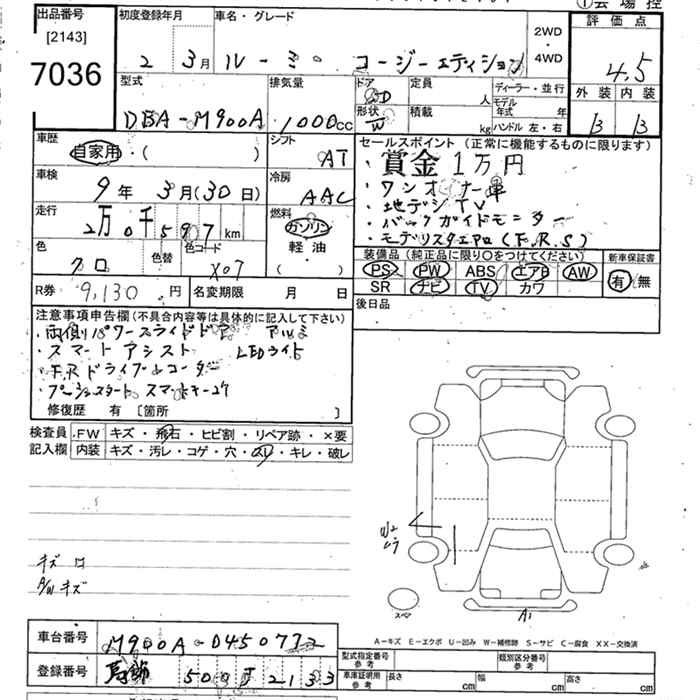 出品番号 初度登録年月 車名・グレード ①会場控
[2143] 2WD・4WD 評価点
7036 2 3月 ルーミー コージーエディション 4.5
型式 排気量 ドア 5D 定員 人 ディーラー・並行 外装 内装
DBA-M900A 1000cc 形状 W 積載 kg モデル年式 年 ハンドル 左・右 B B
車歴 自家用・( ) シフト AT
セールスポイント (正常に機能するものに限ります)
・賞金1万円
車検 9年 3月(30日) 冷房 AAC
・ワンオーナー車
・地デジTV
走行 2万0千597km 燃料 ガソリン・軽油・( )
・バックガイドモニター
・モデリスタエアロ(F.R.S)
色 クロ 色替 色コード X07
装備品 (純正品に限り○をつけてください) 新車保証書
PS PW ABS エアB AW 有・無
SR ナビ TV カワ
R券 9,130円 名変期限 月 日
後日品
注意事項申告欄(不具合内容等は具体的に記入して下さい)
・両側パワースライドドア アルミ
・スマートアシスト LEDライト
・F.Rドライブレコーダー
・プッシュスタート スマートキー2ケ
修復歴 有 [箇所 ]
検査員 FW キズ・飛石・ヒビ割・リペア跡・×要
記入欄 内装 キズ・汚レ・コゲ・穴・スレ・キレ・破レ
キズ
A/W キズ
スペア
A1
A-キズ E-エクボ U-凹み W-補修跡 S-サビ C-腐食 XX-交換済
車台番号 M900A-0450772
登録番号
型式指定番号 参考 類別区分番号 参考
車庫証明用 参考 長さ cm 幅 cm 高さ cm